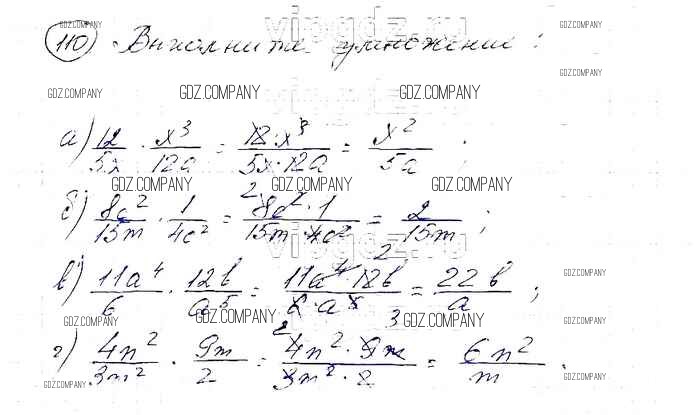 vipgdz.ru
GDZ.COMPANY GDZ.COMPANY
110) Выполните умножение:
GDZ.COMPANY
GDZ.COMPANY GDZ.COMPANY GDZ.COMPANY
vipgdz.ru
а) 12/5x · x³/12a = 12·x³/5x·12a = x²/5a ;
GDZ.COMPANY GDZ.COMPANY GDZ.COMPANY
б) 8c²/15m · 1/4c² = 8c²·1/15m·4c² = 2/15m ;
vipgdz.ru
в) 11a⁴/6 · 12b/a⁵ = 11a⁴·12b/6·a⁵ = 22b/a ;
GDZ.COMPANY GDZ.COMPANY GDZ.COMPANY GDZ.COMPANY
г) 4n²/3m² · 9m/2 = 4n²·9m/3m²·2 = 6n²/m .
GDZ.COMPANY GDZ.COMPANY